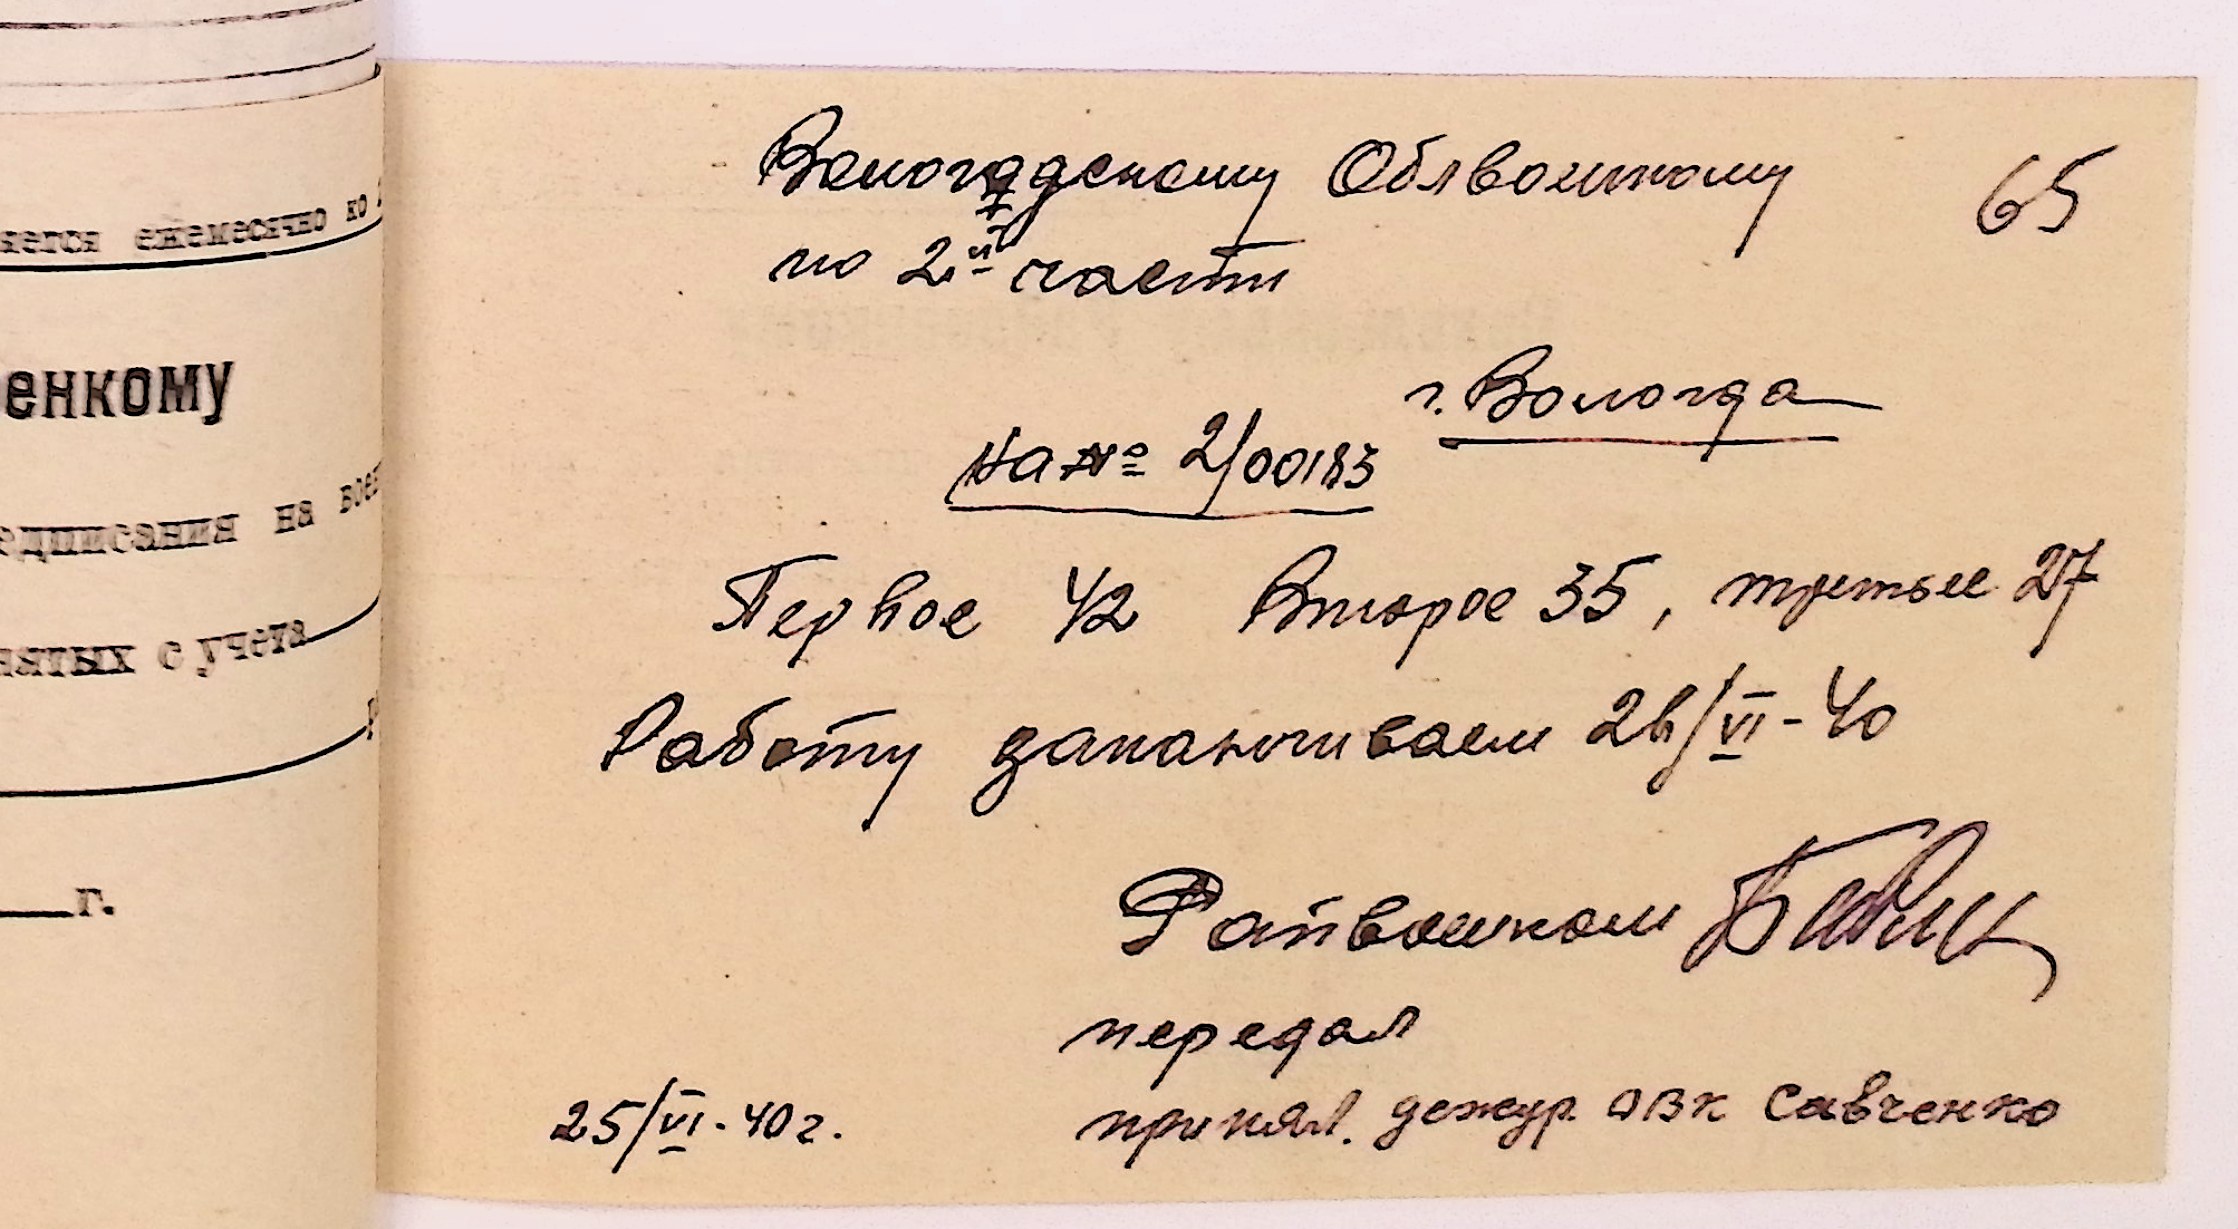 яется ежемесячно ко
енкому
едписания на воен
нятых с учета
г.
65
Вологодскому Облвоенкому
по 2й части
г. Вологда
На № 2/00183
Первое 42 Второе 35, третье 27
Работу заканчиваем 26/VI-40
Райвоенком
передал
25/VI-40г.
принял. дежур. ОВК Савченко